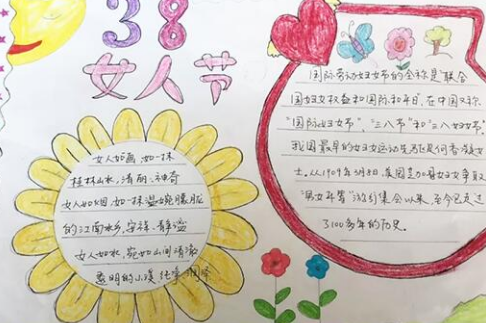 38
女人节
女人如画,如一抹
桂林山水,清丽,神奇
女人如烟,如一抹朦胧
的江南水乡,安祥,静谧
女人如水,宛如山间清澈
透明的小溪,纯净
国际劳动妇女节的全称是联合
国妇女权益和国际和平日,在中国又称
“国际妇女节”,“三八节”和“三八妇女节”,
我国最早的妇女运动是何香凝女
士。从1909年3月8日,美国芝加哥妇女争取
“男女平等”游行集会以来,至今已走过
了100多年的历史